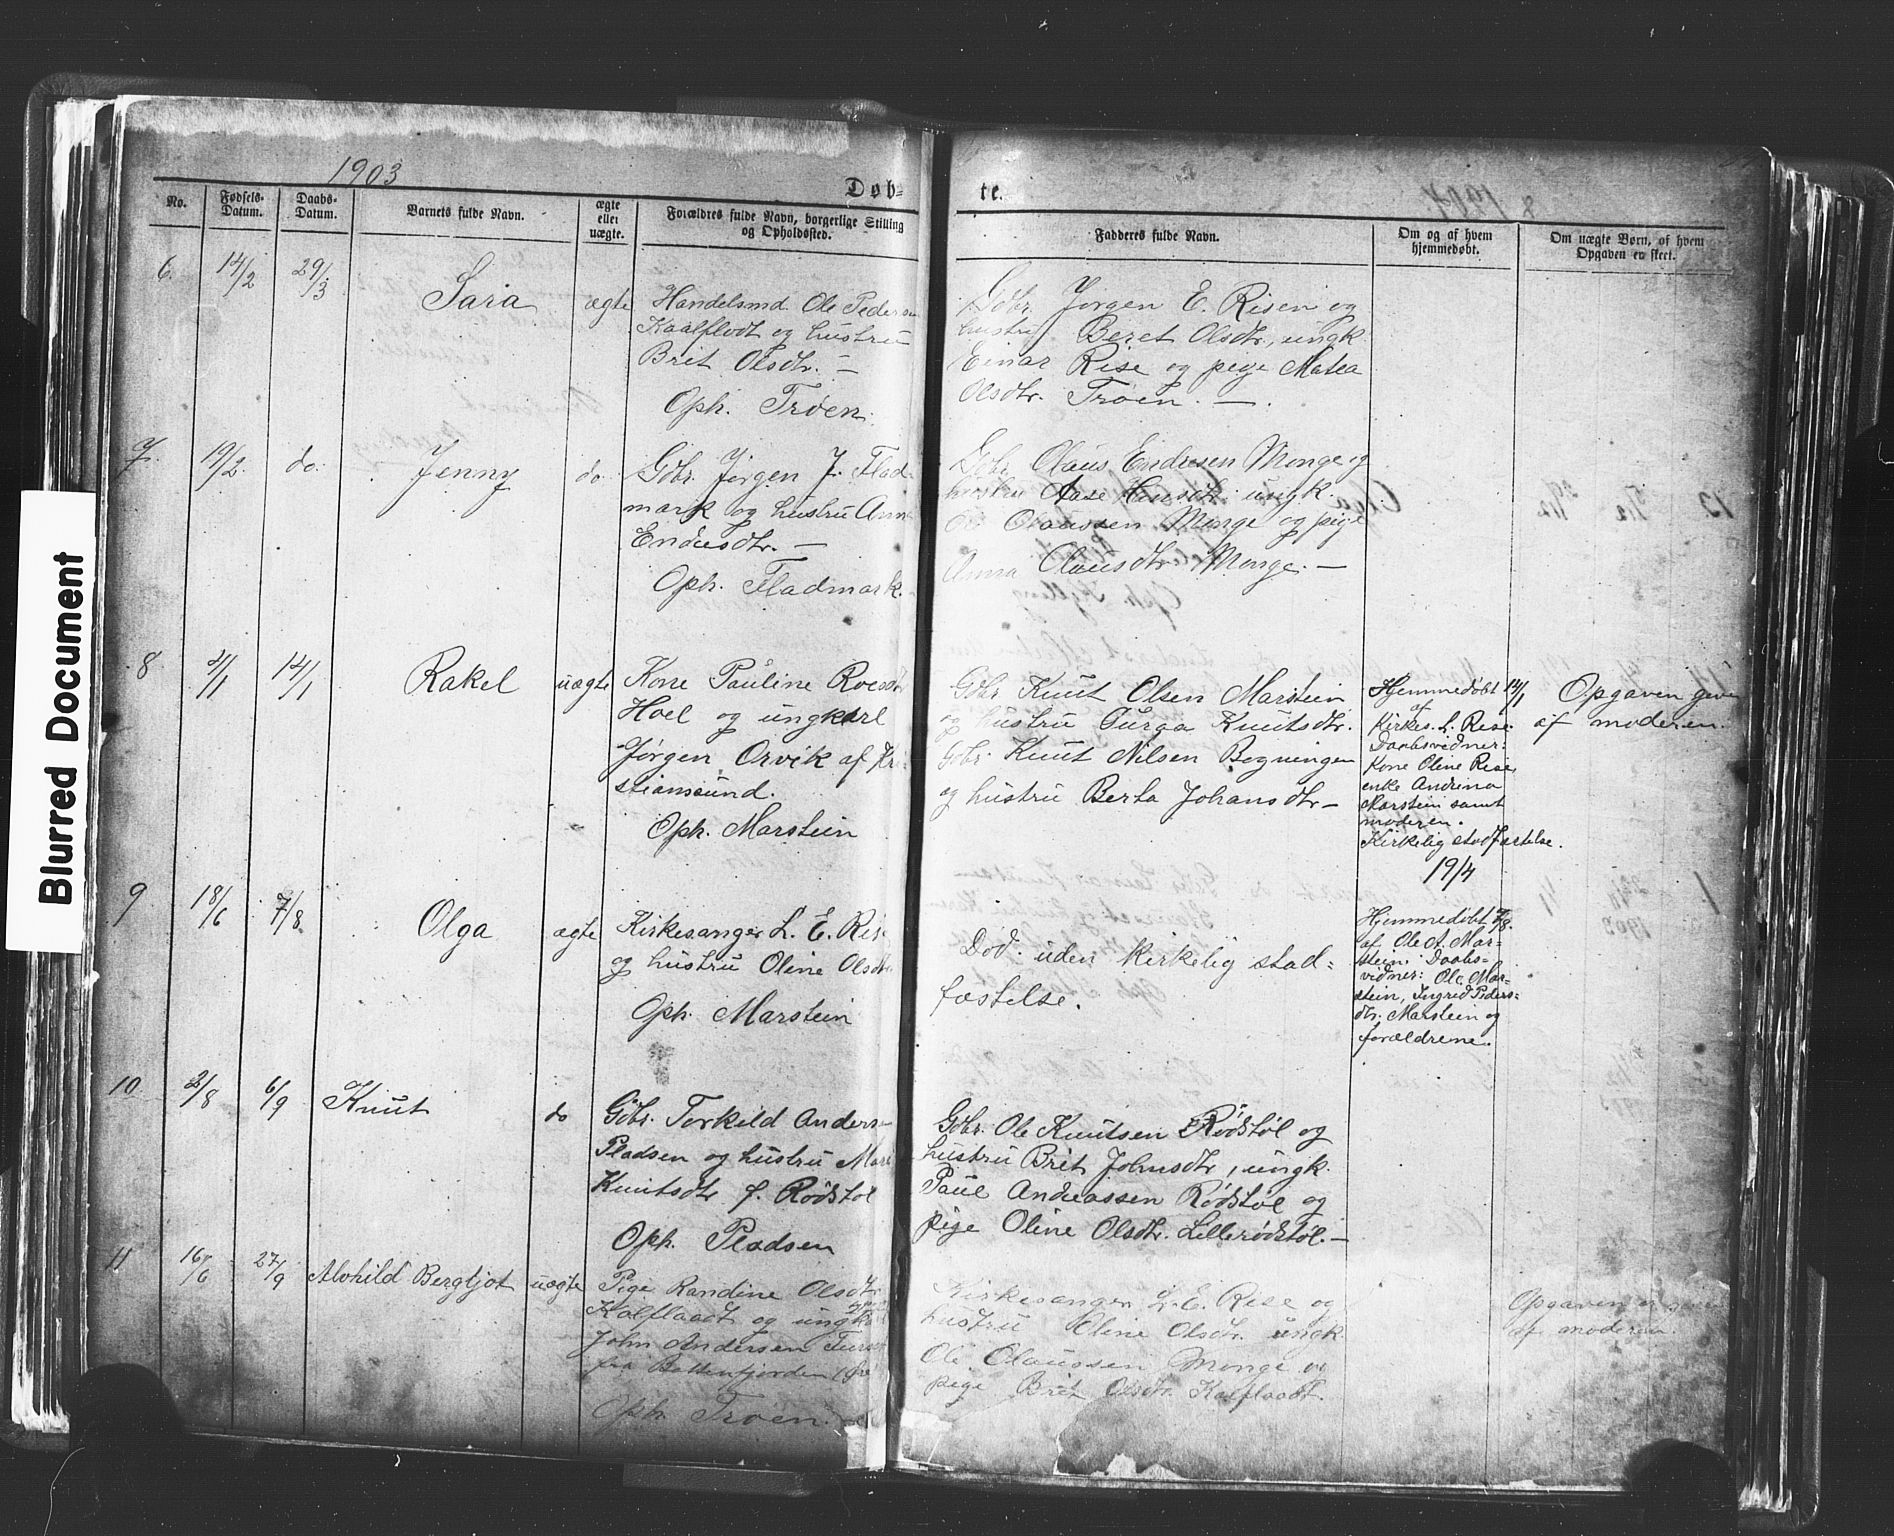 Blurred Document
1903
Døb=
te.
No.
Fødsels-
Datum.
Daabs-
Datum.
Barnets fulde Navn.
ægte
eller
uægte.
Forældres fulde Navn, borgerlige Stilling
og Opholdssted.
Fadderes fulde Navn.
Om og af hvem
hjemmedøbt.
Om uægte Børn, af hvem
Opgaven er skeet.
6. 14/2 29/3 Sara ægte
Handelsmd. Ole Peders
Kaalflodt og hustru
Brit Olsdtr. —
Oph. Trøen.
Gdbr. Jørgen E. Risen og
hustru Beret Olsdtr., ungk.
Einar Rise og pige Matea
Olsdtr. Trøen. —
7. 19/2 do. Jenny do.
Gdbr. Jørgen J. Flad-
mark og hustru Anne
Endresdtr. —
Oph. Fladmark.
Gdbr. Olaus Endresen Monge og
hustru Aase Hansdtr. ungk.
Olaussen Monge og pige
Anna Olausdtr. Monge. —
8 14/1 Rakel uægte
Kone Pauline Roesdtr
Hoel og ungkarl
Jørgen Orvik af Kri-
stiansund.
Oph. Marstein
Gdbr. Knut Olsen Marstein
og hustru Guroa Knutsdtr.
Gdbr. Knut Nilsen Bogningen
og hustru Berta Johansdtr —
Hjemmedøbt 14/1
af
Kirkes. L. Rise.
Daabsvidner:
Kone Oline Rise,
enke Andrina
Marstein samt
moderen.
Kirkelig stadfæstelse.
19/4
Opgaven given
af moderen.
9 18/6 7/8 Olga ægte
Kirkesanger L. E. Rise
og hustru Oline Olsdtr
Oph. Marstein
Død uden kirkelig stad=
fæstelse.
Hjemmedøbt 7/8.
af Ole A. Mar-
stein. Daabs-
vidner: Ole Mar-
stein, Ingrid Peders-
dtr. Marstein og
forældrene.
10 2/8 6/9 Knut do
Gdbr. Torkild Anders
Pladsen og hustru Mari
Knutsdtr f. Rødstøl
Oph. Pladsen
Gdbr. Ole Knutsen Rødstøl og
hustru Brit Johnsdtr, ungk.
Paul Andreassen Rødstøl og
pige Oline Olsdtr. Lillerødstøl. —
11 16/6 27/9 Alvhild Bergljot uægte
Pige Randine Olsdtr
Kalflaadt og ungk
John Andersen
fra Battenfjorden
Oph. Trøen.
Kirkesanger L. E. Rise og
hustru Oline Olsdtr. ungk.
Ole Olaussen Monge og
pige Brit Olsdtr. Kalflaadt.
Opgaven er given
af moderen.